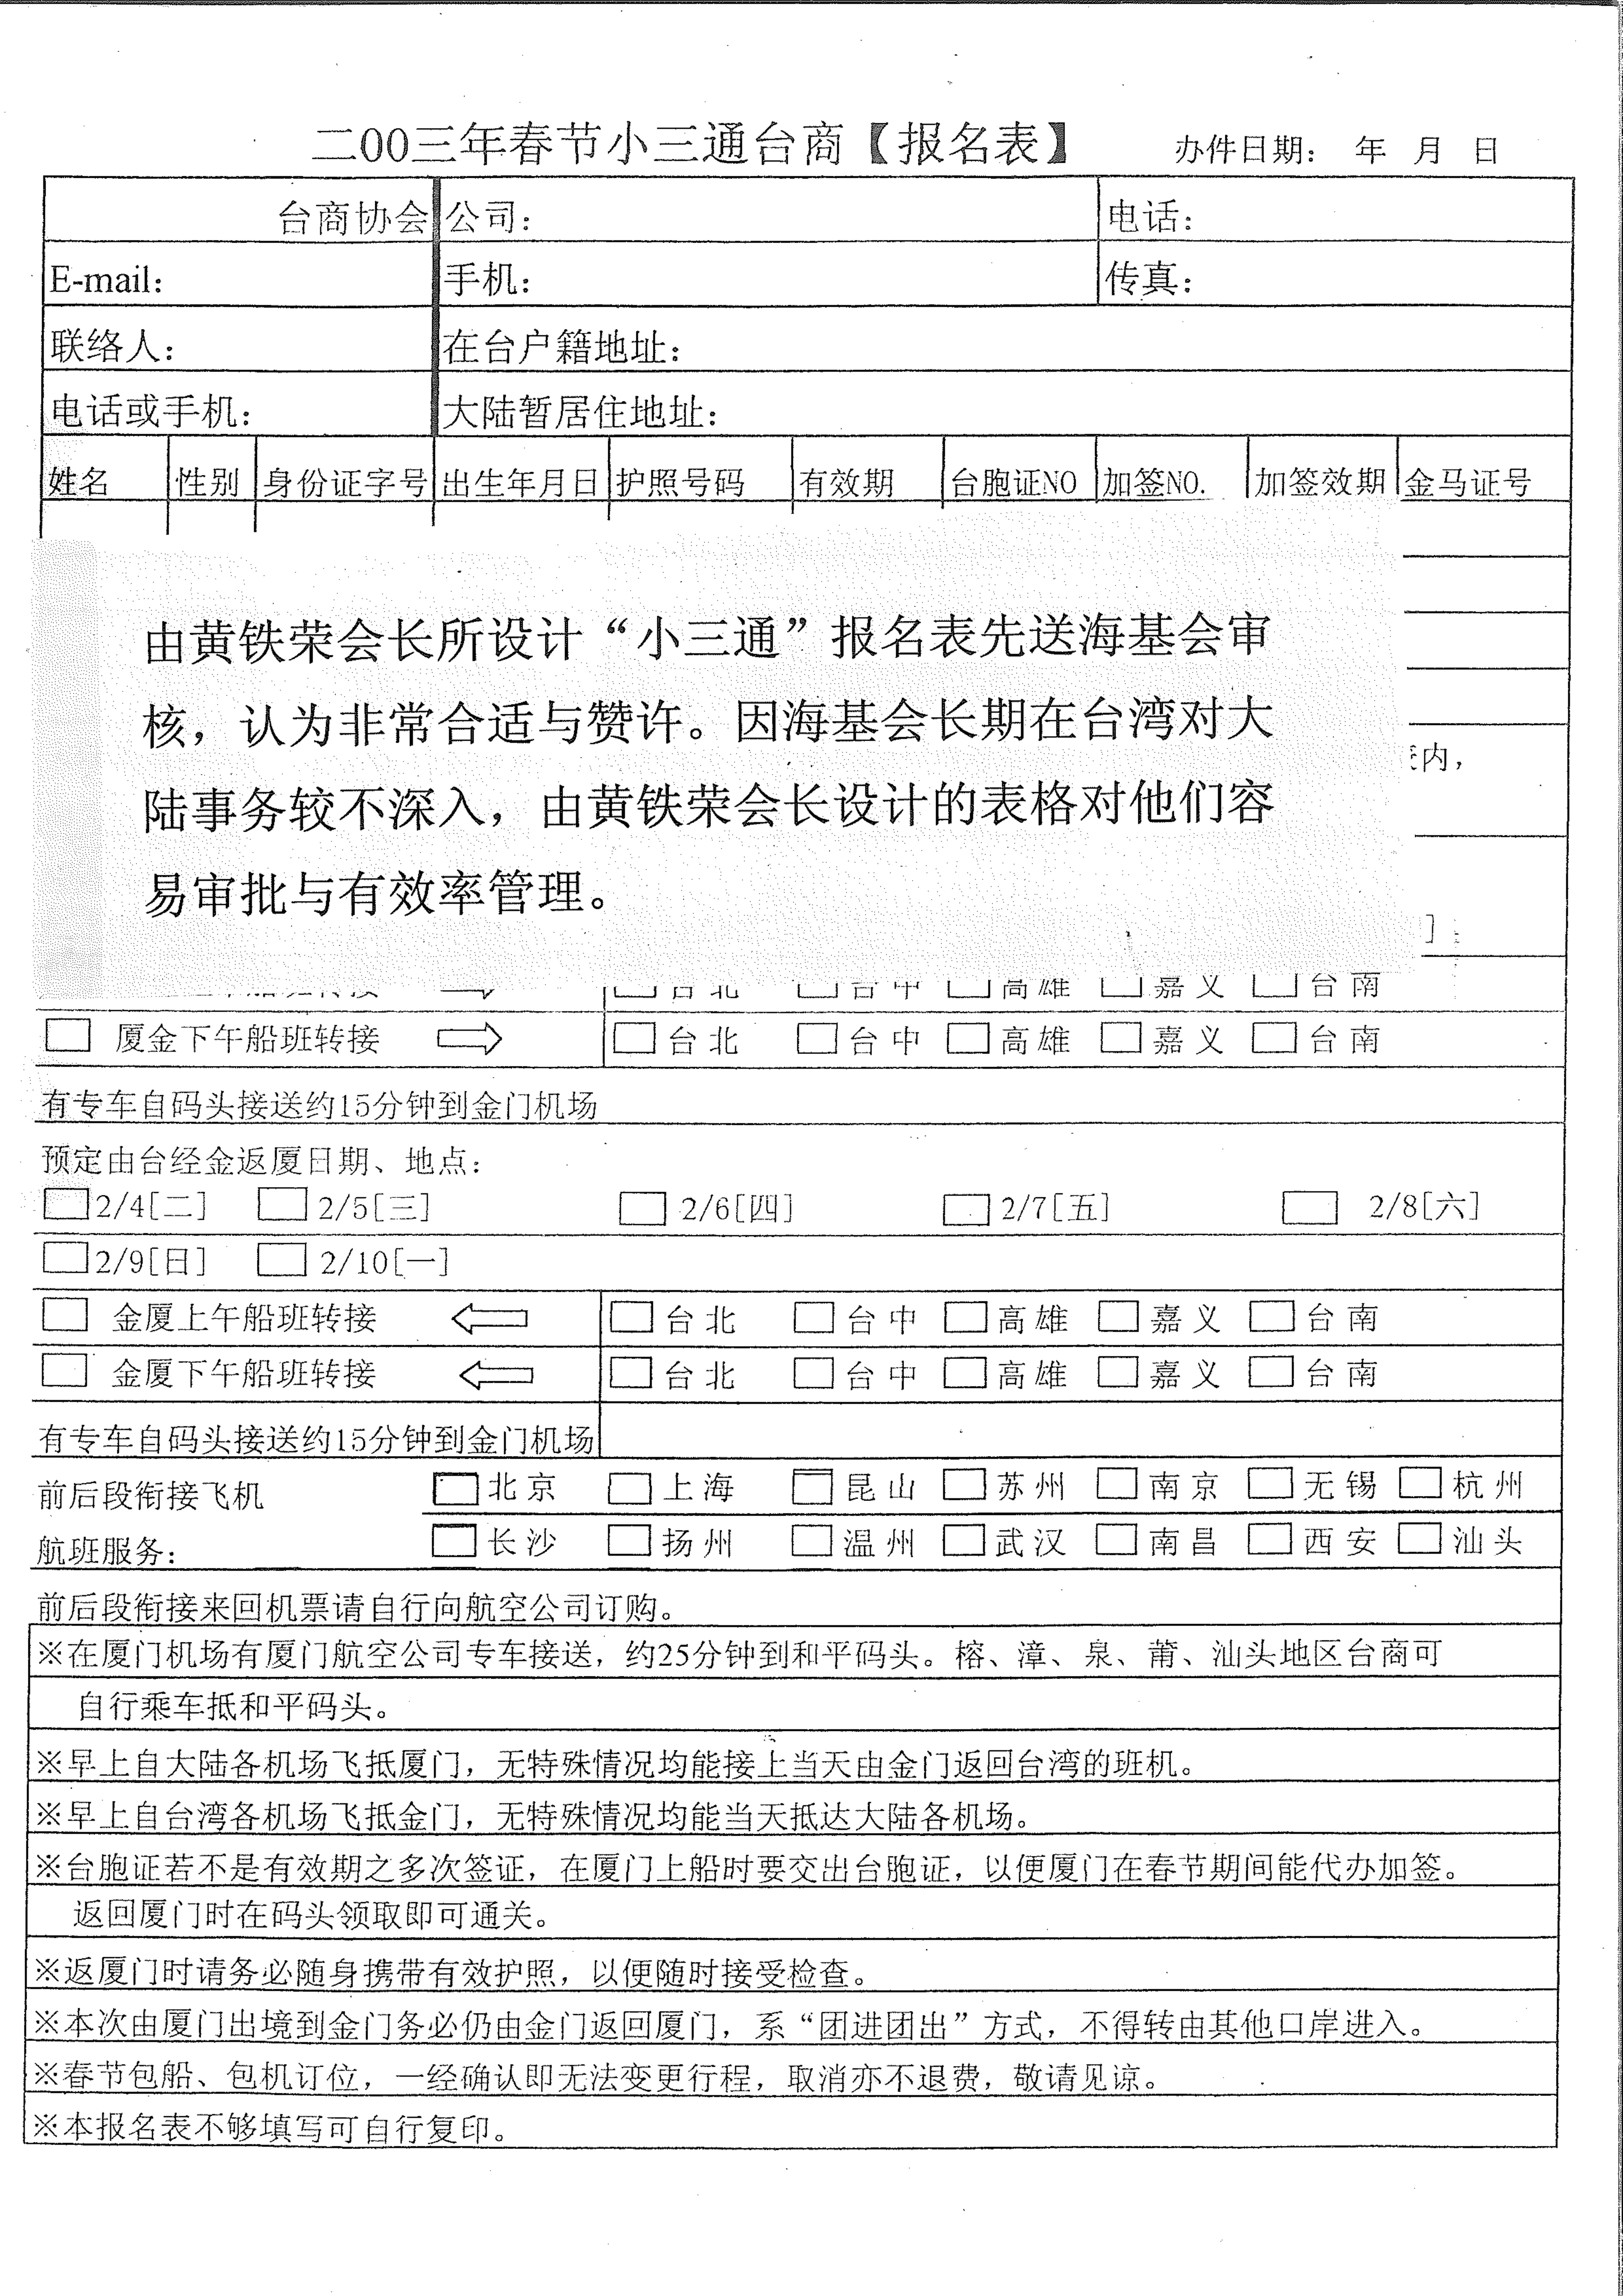 二00三年春节小三通台商【报名表】 办件日期： 年 月 日
台商协会 公司： 电话：
E-mail： 手机： 传真：
联络人： 在台户籍地址：
电话或手机： 大陆暂居住地址：
姓名 性别 身份证字号 出生年月日 护照号码 有效期 台胞证NO 加签NO. 加签效期 金马证号
由黄铁荣会长所设计“小三通”报名表先送海基会审
核，认为非常合适与赞许。因海基会长期在台湾对大
内，
陆事务较不深入，由黄铁荣会长设计的表格对他们容
易审批与有效率管理。
］：
午船班转接 ⇨ □台北 □台中 □高雄 □嘉义 □台南
□ 厦金下午船班转接 ⇨ □台北 □台中 □高雄 □嘉义 □台南
有专车自码头接送约15分钟到金门机场
预定由台经金返厦日期、地点：
□2/4[二] □2/5[三] □2/6[四] □2/7[五] □2/8[六]
□2/9[日] □2/10[一]
□ 金厦上午船班转接 ⇦ □台北 □台中 □高雄 □嘉义 □台南
□ 金厦下午船班转接 ⇦ □台北 □台中 □高雄 □嘉义 □台南
有专车自码头接送约15分钟到金门机场
前后段衔接飞机 □北京 □上海 □昆山 □苏州 □南京 □无锡 □杭州
航班服务： □长沙 □扬州 □温州 □武汉 □南昌 □西安 □汕头
前后段衔接来回机票请自行向航空公司订购。
※在厦门机场有厦门航空公司专车接送，约25分钟到和平码头。榕、漳、泉、莆、汕头地区台商可
自行乘车抵和平码头。
※早上自大陆各机场飞抵厦门，无特殊情况均能接上当天由金门返回台湾的班机。
※早上自台湾各机场飞抵金门，无特殊情况均能当天抵达大陆各机场。
※台胞证若不是有效期之多次签证，在厦门上船时要交出台胞证，以便厦门在春节期间能代办加签。
返回厦门时在码头领取即可通关。
※返厦门时请务必随身携带有效护照，以便随时接受检查。
※本次由厦门出境到金门务必仍由金门返回厦门，系“团进团出”方式，不得转由其他口岸进入。
※春节包船、包机订位，一经确认即无法变更行程，取消亦不退费，敬请见谅。
※本报名表不够填写可自行复印。